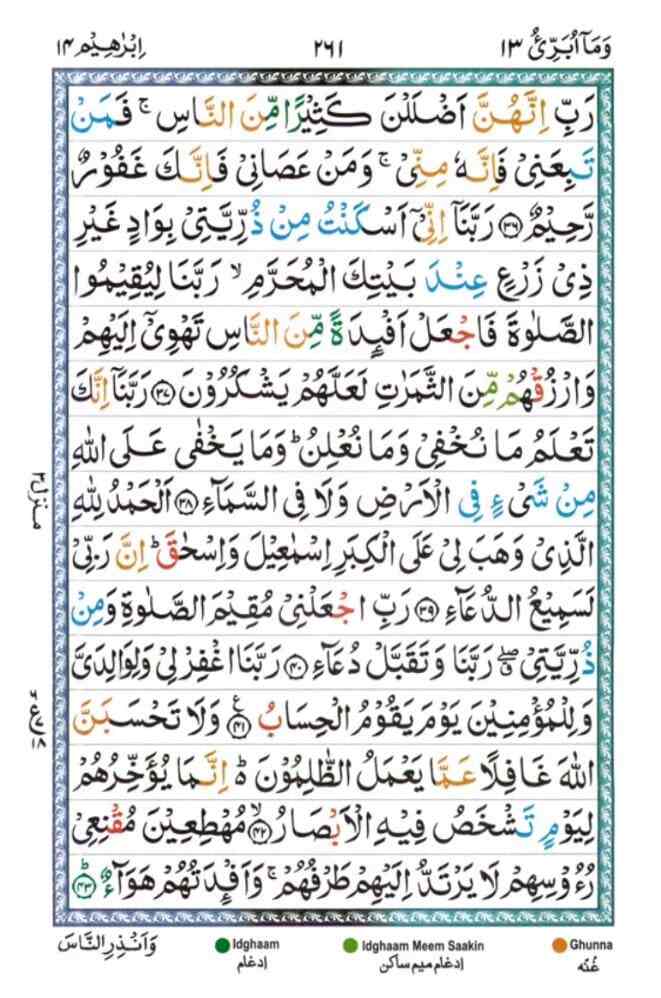 وَمَاۤ اُبَرِّئُ ١٣
٢٦١
اِبْرٰهِيْم ١٤
رَبِّ اِنَّهُنَّ اَضْلَلْنَ كَثِيْرًا مِّنَ النَّاسِ ۚ فَمَنْ
تَبِعَنِىْ فَاِنَّهٗ مِنِّىْ ۚ وَمَنْ عَصَانِىْ فَاِنَّكَ غَفُوْرٌ
رَّحِيْمٌ ﴿٣٦﴾ رَبَّنَاۤ اِنِّىْۤ اَسْكَنْتُ مِنْ ذُرِّيَّتِىْ بِوَادٍ غَيْرِ
ذِىْ زَرْعٍ عِنْدَ بَيْتِكَ الْمُحَرَّمِ ۙ رَبَّنَا لِيُقِيْمُوا
الصَّلٰوةَ فَاجْعَلْ اَفْئِدَةً مِّنَ النَّاسِ تَهْوِىْۤ اِلَيْهِمْ
وَارْزُقْهُمْ مِّنَ الثَّمَرٰتِ لَعَلَّهُمْ يَشْكُرُوْنَ ﴿٣٧﴾ رَبَّنَاۤ اِنَّكَ
تَعْلَمُ مَا نُخْفِىْ وَمَا نُعْلِنُ ؕ وَمَا يَخْفٰى عَلَى اللّٰهِ
مِنْ شَىْءٍ فِى الْاَرْضِ وَلَا فِى السَّمَآءِ ﴿٣٨﴾ اَلْحَمْدُ لِلّٰهِ
الَّذِىْ وَهَبَ لِىْ عَلَى الْكِبَرِ اِسْمٰعِيْلَ وَاِسْحٰقَ ؕ اِنَّ رَبِّىْ
لَسَمِيْعُ الدُّعَآءِ ﴿٣٩﴾ رَبِّ اجْعَلْنِىْ مُقِيْمَ الصَّلٰوةِ وَمِنْ
ذُرِّيَّتِىْ ۖ ق رَبَّنَا وَتَقَبَّلْ دُعَآءِ ﴿٤٠﴾ رَبَّنَا اغْفِرْ لِىْ وَلِوَالِدَىَّ
وَلِلْمُؤْمِنِيْنَ يَوْمَ يَقُوْمُ الْحِسَابُ ﴿٤١﴾ ع وَلَا تَحْسَبَنَّ
اللّٰهَ غَافِلًا عَمَّا يَعْمَلُ الظّٰلِمُوْنَ ؕ اِنَّمَا يُؤَخِّرُهُمْ
لِيَوْمٍ تَشْخَصُ فِيْهِ الْاَبْصَارُ ﴿٤٢﴾ ۙ مُهْطِعِيْنَ مُقْنِعِىْ
رُءُوْسِهِمْ لَا يَرْتَدُّ اِلَيْهِمْ طَرْفُهُمْ ۚ وَاَفْئِدَتُهُمْ هَوَآءٌ ؕ ﴿٤٣﴾
منزل ٣
وَاَنْذِرِ النَّاسَ
Idghaam
ادغام
Idghaam Meem Saakin
ادغام میم ساکن
Ghunna
غُنّه